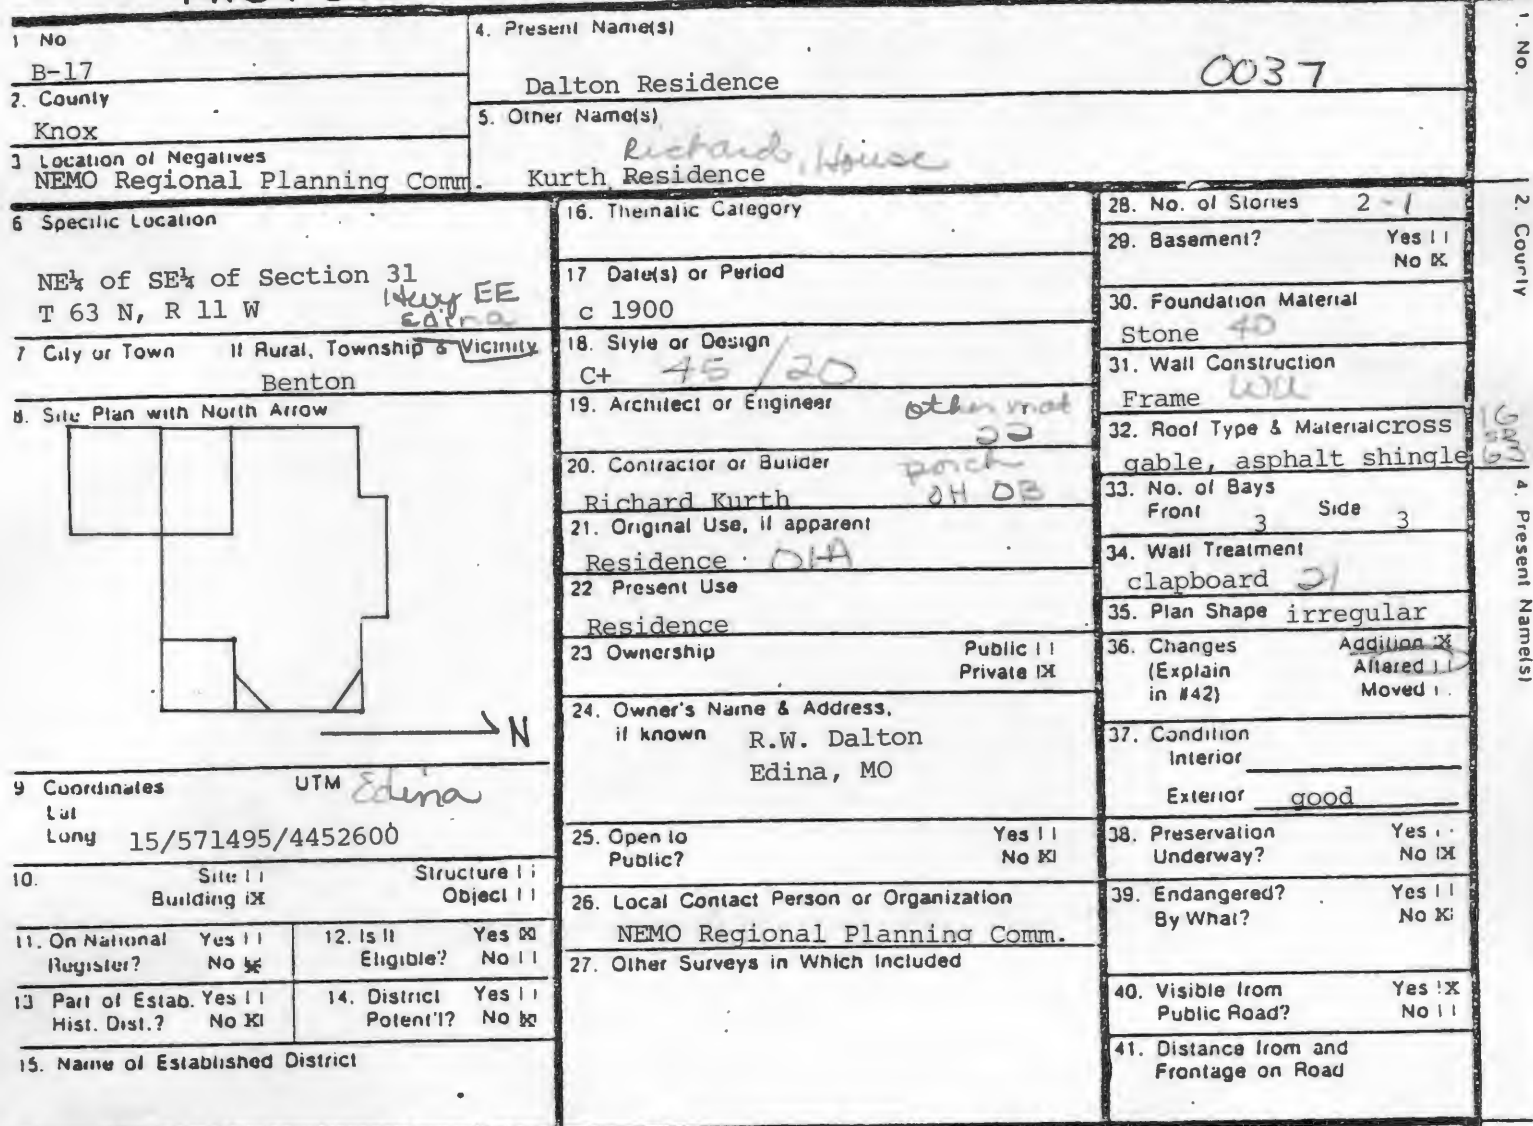 1 No
B-17
2. County
Knox
3 Location of Negatives
NEMO Regional Planning Comm.
4. Present Name(s)
Dalton Residence
0037
5. Other Name(s)
Richard, House
Kurth Residence
6 Specific Location
NE¼ of SE¼ of Section 31
T 63 N, R 11 W
Hwy EE
Edina
7 City or Town If Rural, Township & Vicinity
Benton
8. Site Plan with North Arrow
N
9 Coordinates UTM Edina
Lat
Long 15/571495/4452600
10. Site [ ] Structure [ ]
Building [X] Object [ ]
11. On National Register? Yes [ ] No [X]
12. Is It Eligible? Yes [X] No [ ]
13 Part of Estab. Hist. Dist.? Yes [ ] No [X]
14. District Potent'l? Yes [ ] No [X]
15. Name of Established District
16. Thematic Category
17 Date(s) or Period
c 1900
18. Style or Design
C+ 45/20
19. Architect or Engineer
other mat
22
20. Contractor or Builder
porch
Richard Kurth OH OB
21. Original Use, if apparent
Residence 01A
22 Present Use
Residence
23 Ownership Public [ ]
Private [X]
24. Owner's Name & Address,
if known R.W. Dalton
Edina, MO
25. Open to Yes [ ]
Public? No [X]
26. Local Contact Person or Organization
NEMO Regional Planning Comm.
27. Other Surveys in Which Included
28. No. of Stories 2-1
29. Basement? Yes [ ]
No [X]
30. Foundation Material
Stone 40
31. Wall Construction
Frame
32. Roof Type & Material cross
gable, asphalt shingle
33. No. of Bays
Front 3 Side 3
34. Wall Treatment
clapboard 21
35. Plan Shape irregular
36. Changes Addition [X]
(Explain Altered [ ]
in #42) Moved [ ]
37. Condition
Interior
Exterior good
38. Preservation Yes [ ]
Underway? No [X]
39. Endangered? Yes [ ]
By What? No [X]
40. Visible from Yes [X]
Public Road? No [ ]
41. Distance from and
Frontage on Road
1. No.
2. County
4. Present Name(s)